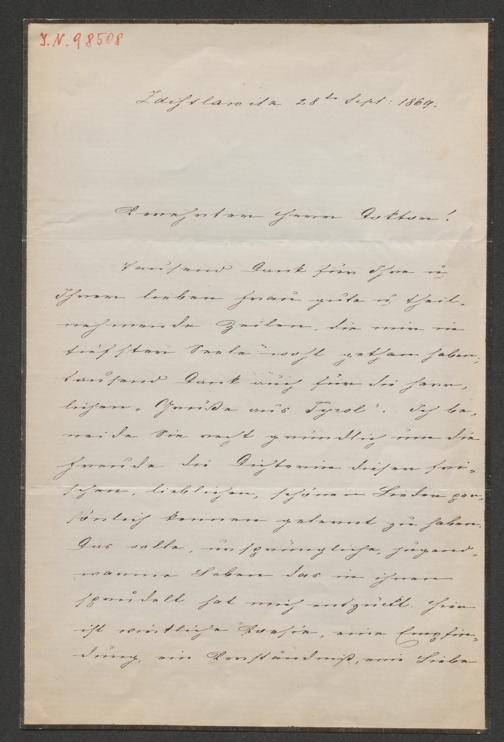 J.N. 98508
Zdißlawitz 28te Sept: 1869.
Verehrter Herr Doktor!
Tausend Dank für Ihre u.
Ihrer lieben Frau gute u. theil-
nehmende Zeilen, die mir in
tiefster Seele wohl gethan haben,
tausend Dank auch für die herr-
lichen „Grüße aus Tyrol". Ich be-
neide Sie recht gründlich um die
Freude die Dichterin dieser fri-
schen, lieblichen, schönen Lieder per-
sönlich kennen gelernt zu haben.
Das volle, ursprüngliche, jugend-
warme Leben das in ihnen
sprudelt hat mich entzückt. Hier
ist wirkliche Poesie, eine Empfin-
dung, ein Verständniß, eine Liebe